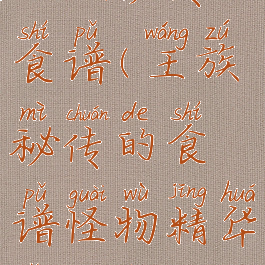 shí pǔ wáng zú
食谱(王族
mì chuán de shí
秘传的食
pǔ guài wù jīng huá
谱怪物精华